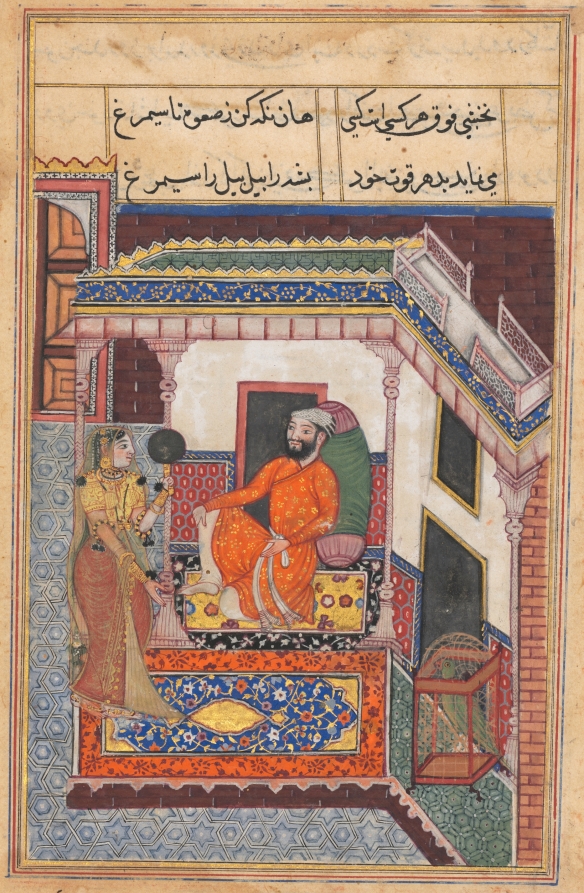 نخشبی فوق هر کسی است کسی هان نکه کن ز صعوه تا سیمرغ
می نماید بدهر قوت خود پشه را پیل پیل را سیمرغ